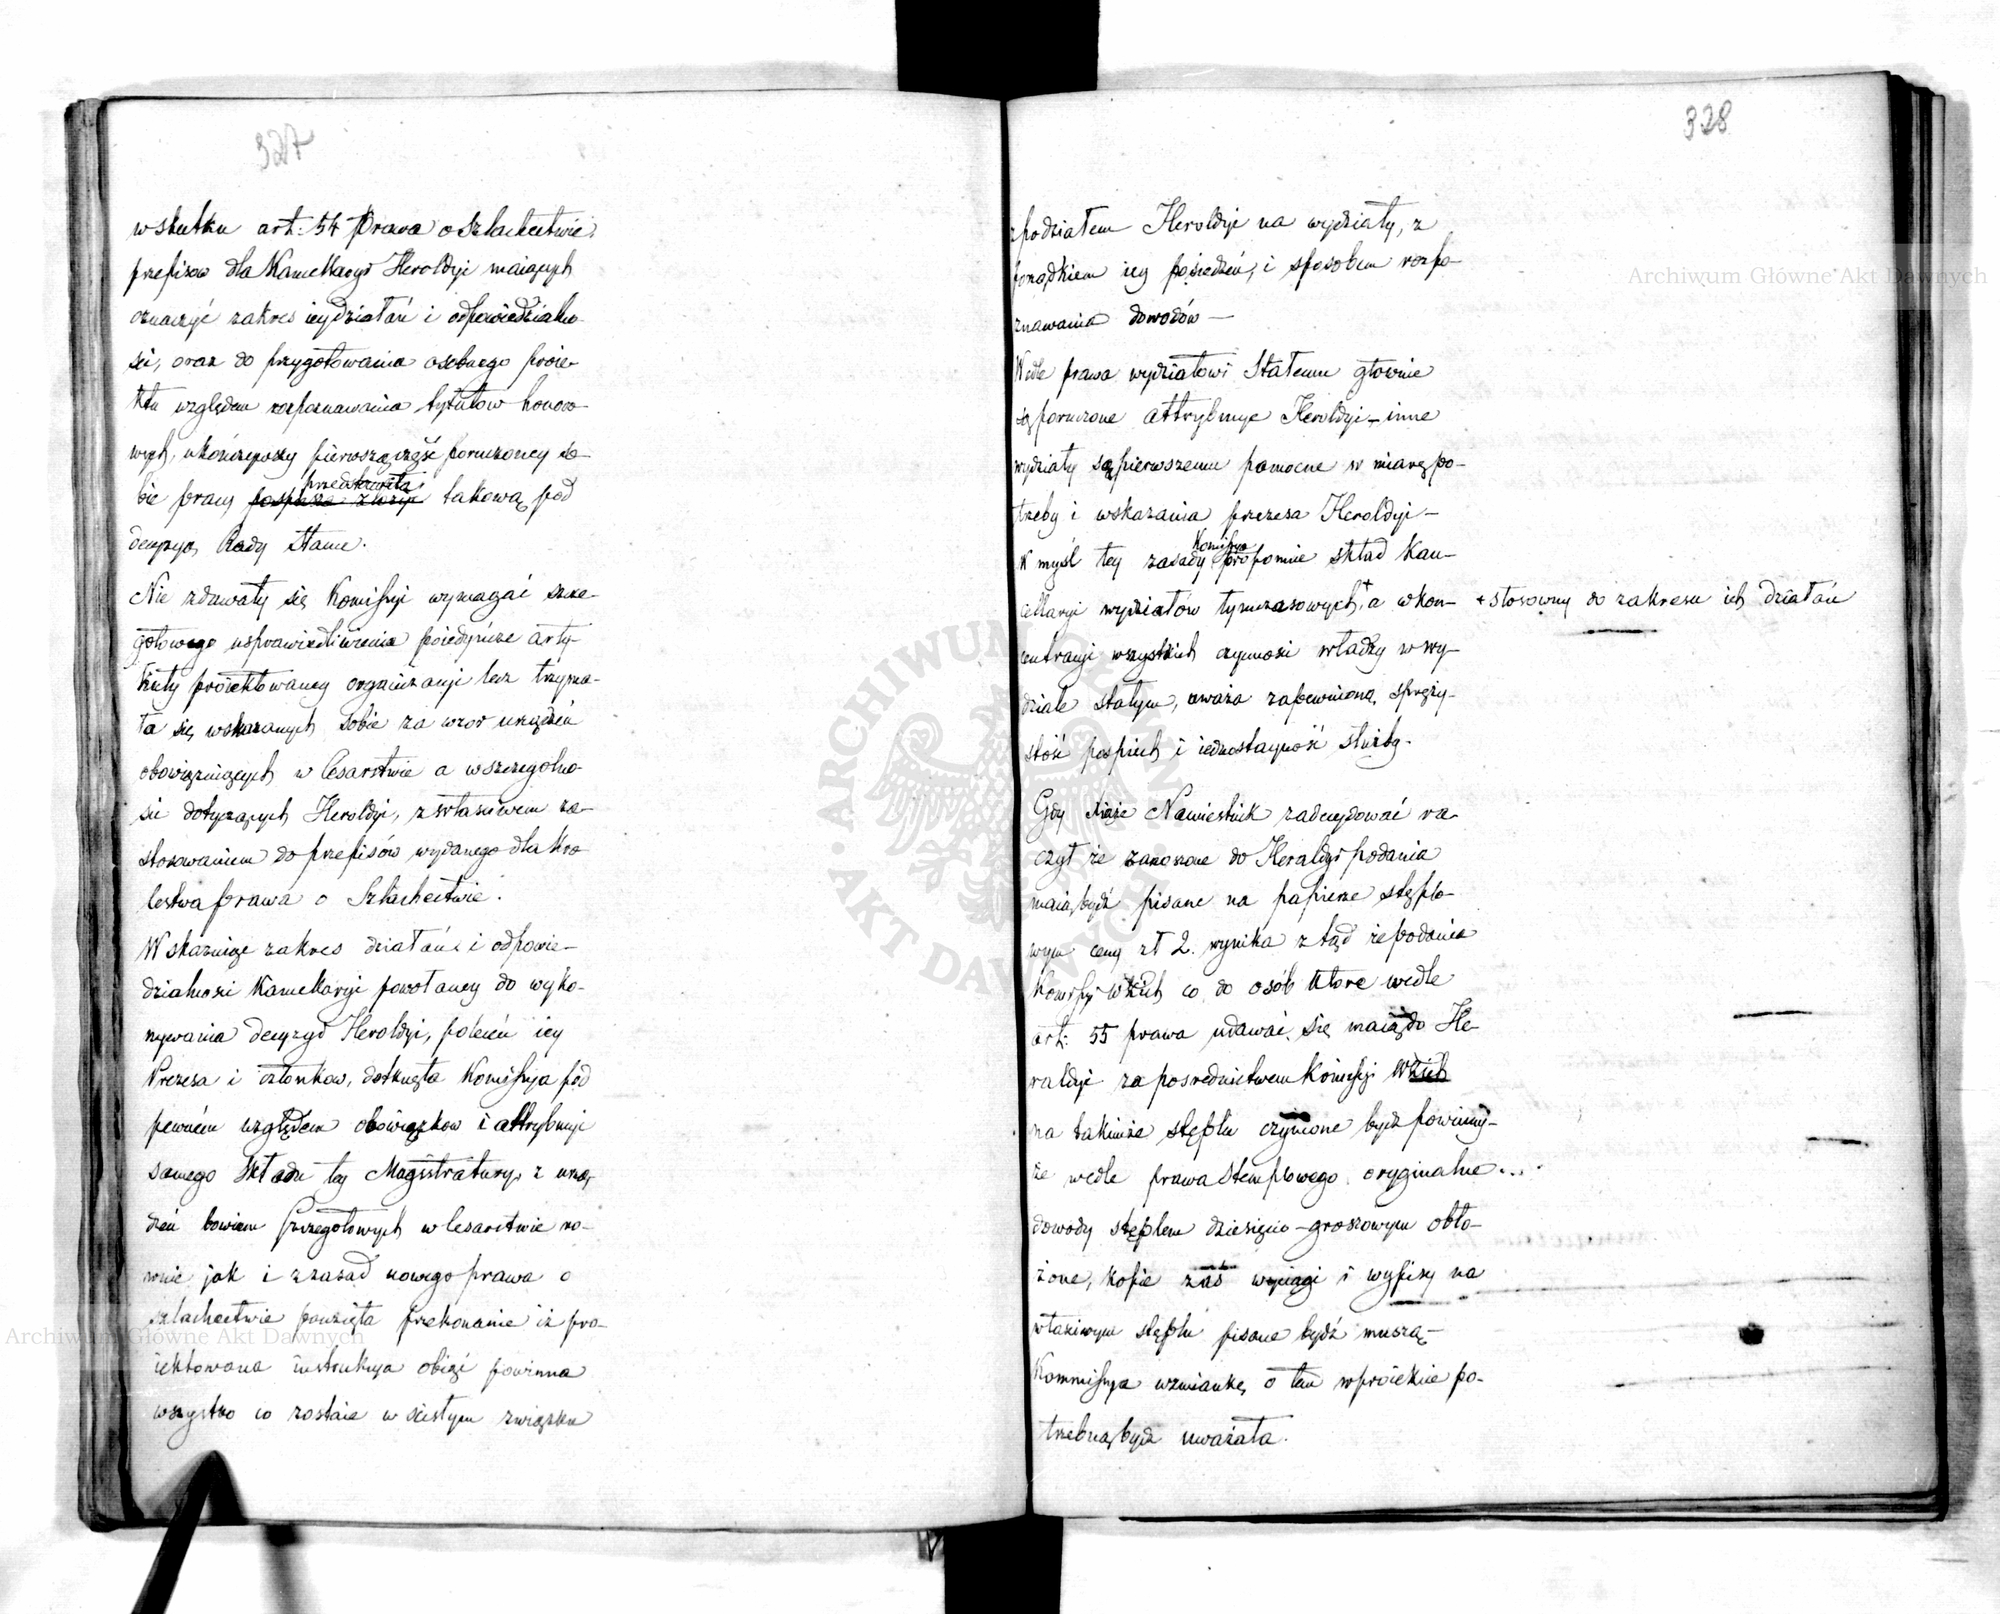 327
wskutku art: 54 Prawa o Szlachectwie,
przepisow dla Kancellaryi Heroldyi maiących
oznaczyć zakres iey działań i odpowiedzialno-
ści, oraz do przygotowania osobnego proie-
ktu względem rozpoznawania tytułow honoro-
wych, ukończywszy pierwszą część poruczoney so-
bie pracy przedstawia takową pod
decyzyą Rady Stanu.
Nie zdawały się Kommissyi wymagać szcze-
gołowego usprawiedliwienia poiedyncze arty-
kuły proiektowaney organizacyi lecz trzyma-
ła się wskazanych sobie za wzor urządzeń
obowiązuiących w Cesarstwie a wszczegolno-
ści dotyczących Heroldyi, z właściwem za-
stosowaniem do przepisów wydanego dla Kro
lestwa prawa o Szlachectwie.
Wskazuiąc zakres działań i odpowie-
dzialności Kancellaryi powołaney do wyko-
nywania decyzyi Heroldyi, poleceń iey
Prezesa i członkow, dotknęła Kommissyia pod
pewnem względem obowiązkow i attrybucyi
samego składu tey Magistratury, z urzą-
dzeń bowiem szczegołowych w Cesarstwie ro-
wnie jak i z zasad nowego prawa o
szlachectwie powzięła przekonanie iż pro-
iektowana instrukcya obiąć powinna
wszystko co zostaie w ścisłym związku
328
z podziałem Heroldyi na wydziały, z
porządkiem iey posiedzeń, i sposobem rozpo-
znawania dowodów —
Wedle prawa wydziałowi Stałemu głownie
są poruczone attrybucye Heroldyi – inne
wydziały są pierwszemu pomocne w miarę po-
trzeby i wskazania prezesa Heroldyi –
W myśl tey zasady Komissya proponuie skład Kan-
cellaryi wydziałów tymczasowych + a wkon- + stosowny do zakresu ich działań
centracyi wszystkich czynności władzy w wy-
dziale stałym, uważa zapewnioną spręży-
stość pośpiech i iednostayność służby.
Gdy Xiąże Namiestnik zadecydować ra-
czył że zanoszone do Heraldyi podania
maią bydź pisane na papierze stęplo-
wym ceny zł 2. wynika ztąd że podania
Komissyi Wdzkich co do osób które wedle
art: 55 prawa udawać się maią do He-
raldyi za posrednictwem Komissyi Wdzkich
na takimże stęplu czynione bydź powinny –
że wedle prawa stemplowego oryginalne ...
dowody stęplem dziesięcio-groszowym obło-
żone, kopie zaś wyciągi i wypisy na
właściwym stęplu pisane bydź muszą –
Kommissya wzmiankę o tem w proiekcie po-
trzebną bydź uważała.
Archiwum Główne Akt Dawnych
Archiwum Główne Akt Dawnych
ARCHIWUM GŁÓWNE · AKT DAWNYCH